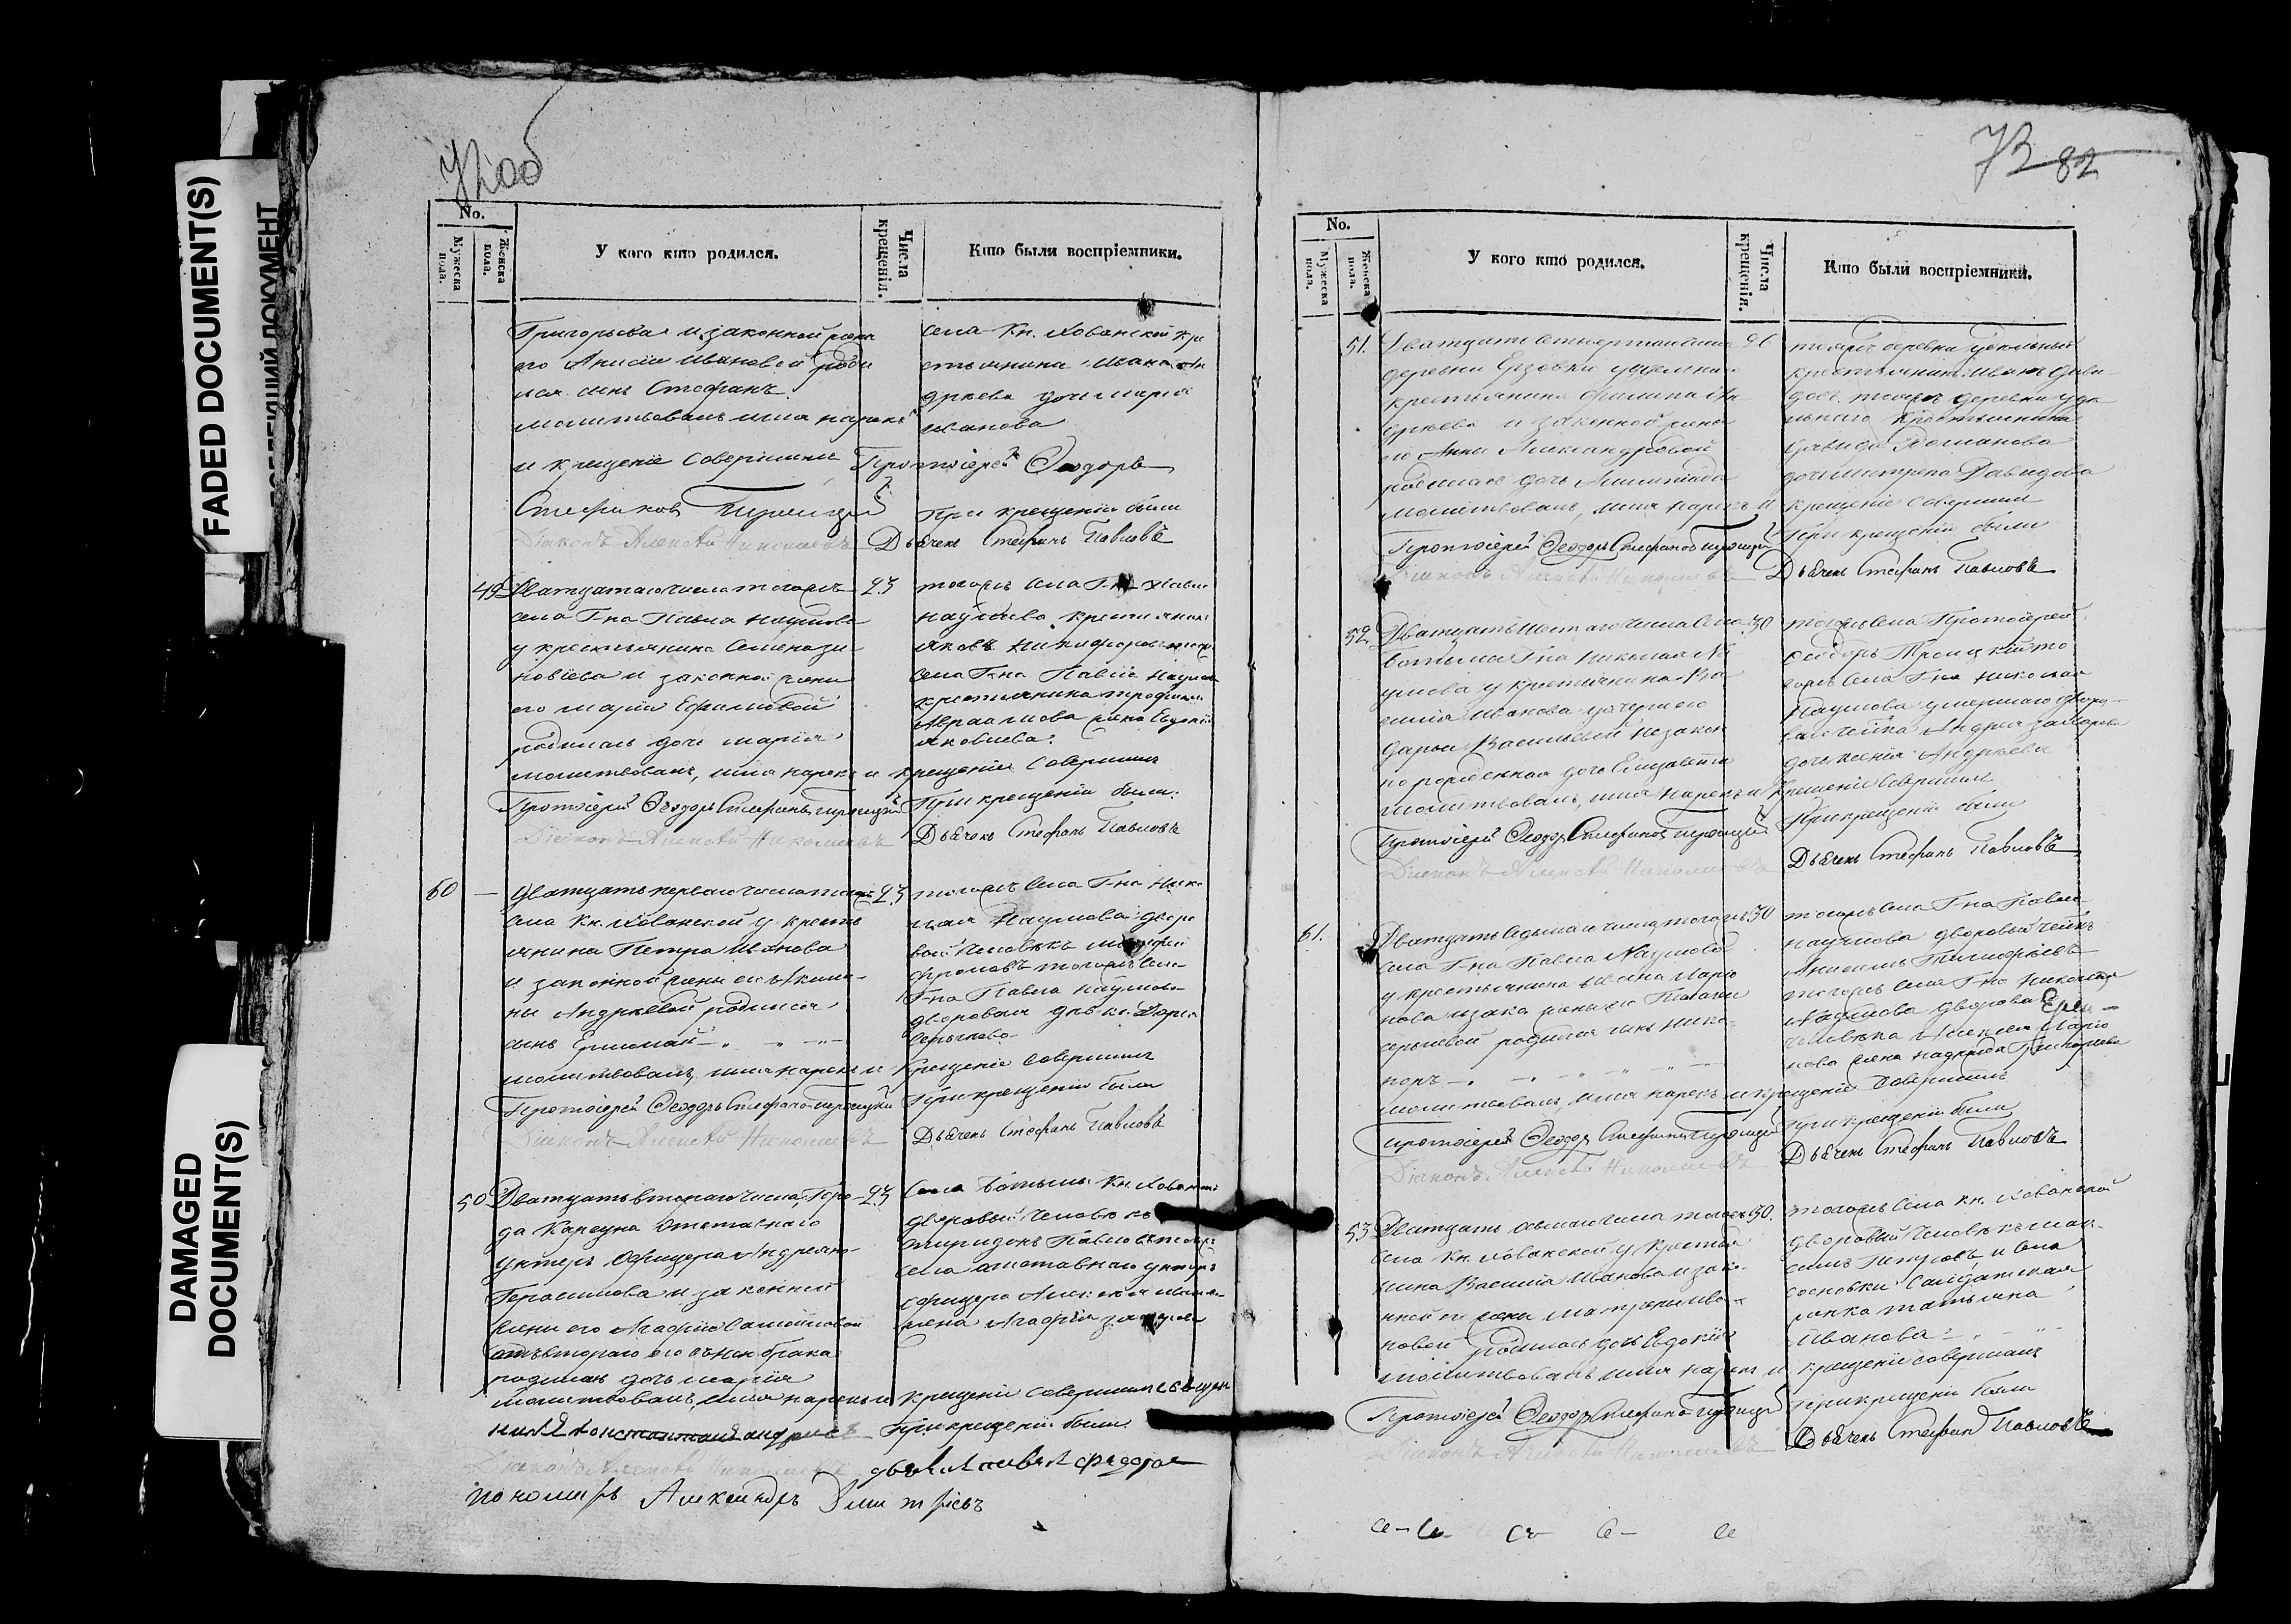 FADED DOCUMENT(S)
DAMAGED
DOCUMENT(S)
72об
No.
Мужеска пола.
Женска пола.
У кого кто родился.
Числа крещенія.
Кто были воспріемники.
Григорьева и законной жены
его Анисіи Ивановой роди
лся сынъ Стефанъ.
молитвовалъ имя нарекъ
и крещеніе совершилъ Протоіерей Ѳеодоръ
Стефановъ Троицкій
Діаконъ Алексѣй Николаевъ
села Кн. Хованской кре
стьянина Ивана Ан
дреева дочь Марія
Иванова
При крещеніи были
Дьячекъ Стефанъ Павловъ
49 Дватцатаго числа тогожъ 23
села Г-на Павла Наумова
у крестьянина Семена Зи
новіева и законной жены
его Маріи Ефимовой
родилась дочь Марія
молитвовалъ, имя нарекъ и крещеніе совершилъ
Протоіерей Ѳеодоръ Стефановъ Троицкій
Діаконъ Алексѣй Николаевъ
тогожъ села Г-на Павла
Наумова крестьянинъ
Яковъ Никифоровъ
села Г-на Павла Наумова
крестьянина Трофима
Авраамова жена Евдокія
Яковлева.
При крещеніи были:
Дьячекъ Стефанъ Павловъ
60 — Дватцать перваго числа тогожъ 23
села Кн. Хованской у кресть
янина Петра Иванова
и законной жены его Акили
ны Андреевой родился
сынъ Ермолай
молитвовалъ, имя нарекъ и крещеніе совершилъ
Протоіерей Ѳеодоръ Стефановъ Троицкій
Діаконъ Алексѣй Николаевъ
тогожъ села Г-на Нико
лая Наумова дворо
вой человѣкъ
Фроловъ тогожъ села
Г-на Павла Наумова
дворовая дѣвка Дарья
При крещеніи были
Дьячекъ Стефанъ Павловъ
50 Дватцать втораго числа, Горо 23
да Карсуна отставнаго
унтеръ офицера Андреяна
Герасимова и законной
жены его Агафіи Самойловой
отъ втораго его съ нею брака
родилась дочь Марія
молитвовалъ, имя нарекъ и крещеніе совершилъ священ
никъ Константинъ Андреевъ
Діаконъ Алексѣй Николаевъ
пономарь Александръ Дмитріевъ
Села Ботьмы Кн. Хованской
дворовый человѣкъ
Спиридонъ Павловъ тогожъ
села отставнаго унтеръ
офицера Алексѣя Ивано
жена Агафія Захарова
При крещеніи были
73 82
No.
Мужеска пола.
Женска пола.
У кого кто родился.
Числа крещенія.
Кто были воспріемники.
51. Дватцать четвертаго числа 26
деревни Ерзовки удѣльнаго
крестьянина Филипа Ан
дреева и законной жены
его Анны Александровой
родилась дочь Олимпіада
молитвовалъ, имя нарекъ и крещеніе совершилъ
Протоіерей Ѳеодоръ Стефановъ Троицкій
Діаконъ Алексѣй Николаевъ
тояжъ деревни удѣльный
крестьянинъ Иванъ Дави
довъ тояжъ деревни удѣ
льнаго крестьянина
Давида Романова
дочь Матрена Давидова
При крещеніи были
Дьячекъ Стефанъ Павловъ
52. Дватцать шестаго числа села 30
Ботьмы Г-на Николая На
умова у крестьянина Ва
силія Иванова у дочери его
Дарьи Васильевой незакон
но рожденная дочь Елизавета
молитвовалъ, имя нарекъ и крещеніе совершилъ
Протоіерей Ѳеодоръ Стефановъ Троицкій
Діаконъ Алексѣй Николаевъ
тогожъ села Протоіерей
Ѳеодоръ Троицкій то
гожъ села Г-на Николая
Наумова умершаго дворо
ваго чел-ка Андрея Захарова
дочь Ксенія Андреева
При крещеніи были
Дьячекъ Стефанъ Павловъ
61. Дватцать седьмаго числа тогожъ 30
села Г-на Павла Наумова
у крестьянина Ивана Ларіо
нова и зако жены его Татьяны
родился сынъ Ника
норъ
молитвовалъ, имя нарекъ и крещеніе совершилъ
Протоіерей Ѳеодоръ Стефановъ Троицкій
Діаконъ Алексѣй Николаевъ
тогожъ села Г-на Павла
Наумова дворовый чел-къ
Анисимъ Тимофѣевъ
тогожъ села Г-на Николая
Наумова двороваго
человѣка Алексѣя Ларіо
нова жена Надежда Григорьева
При крещеніи были
Дьячекъ Стефанъ Павловъ
53 Дватцать осьмаго числа тогожъ 30.
села Кн. Хованской у крестья
нина Василія Иванова и зако
нной его жены Матрены Ива
новой родилась дочь Евдокія
молитвовалъ имя нарекъ и крещеніе совершилъ
Протоіерей Ѳеодоръ Стефановъ Троицкій
Діаконъ Алексѣй Николаевъ
тогожъ села Кн. Хованской
дворовый человѣкъ Мак
симъ Петровъ, и села
Сосновки солдатская
жонка Татьяна
Иванова
При крещеніи были
Дьячекъ Стефанъ Павловъ